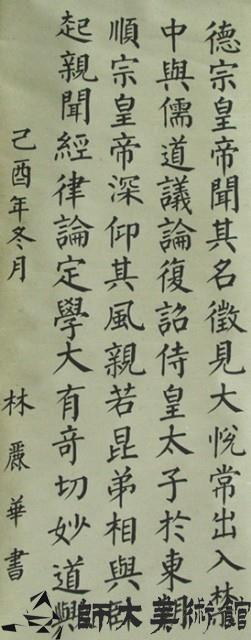 德宗皇帝聞其名徵見大悅常出入禁
中與儒道議論復詔侍皇太子於東朝
順宗皇帝深仰其風親若昆弟相與臥
起親聞經律論定學大有奇切妙道與
己酉年冬月
林麗華書
師大美術館